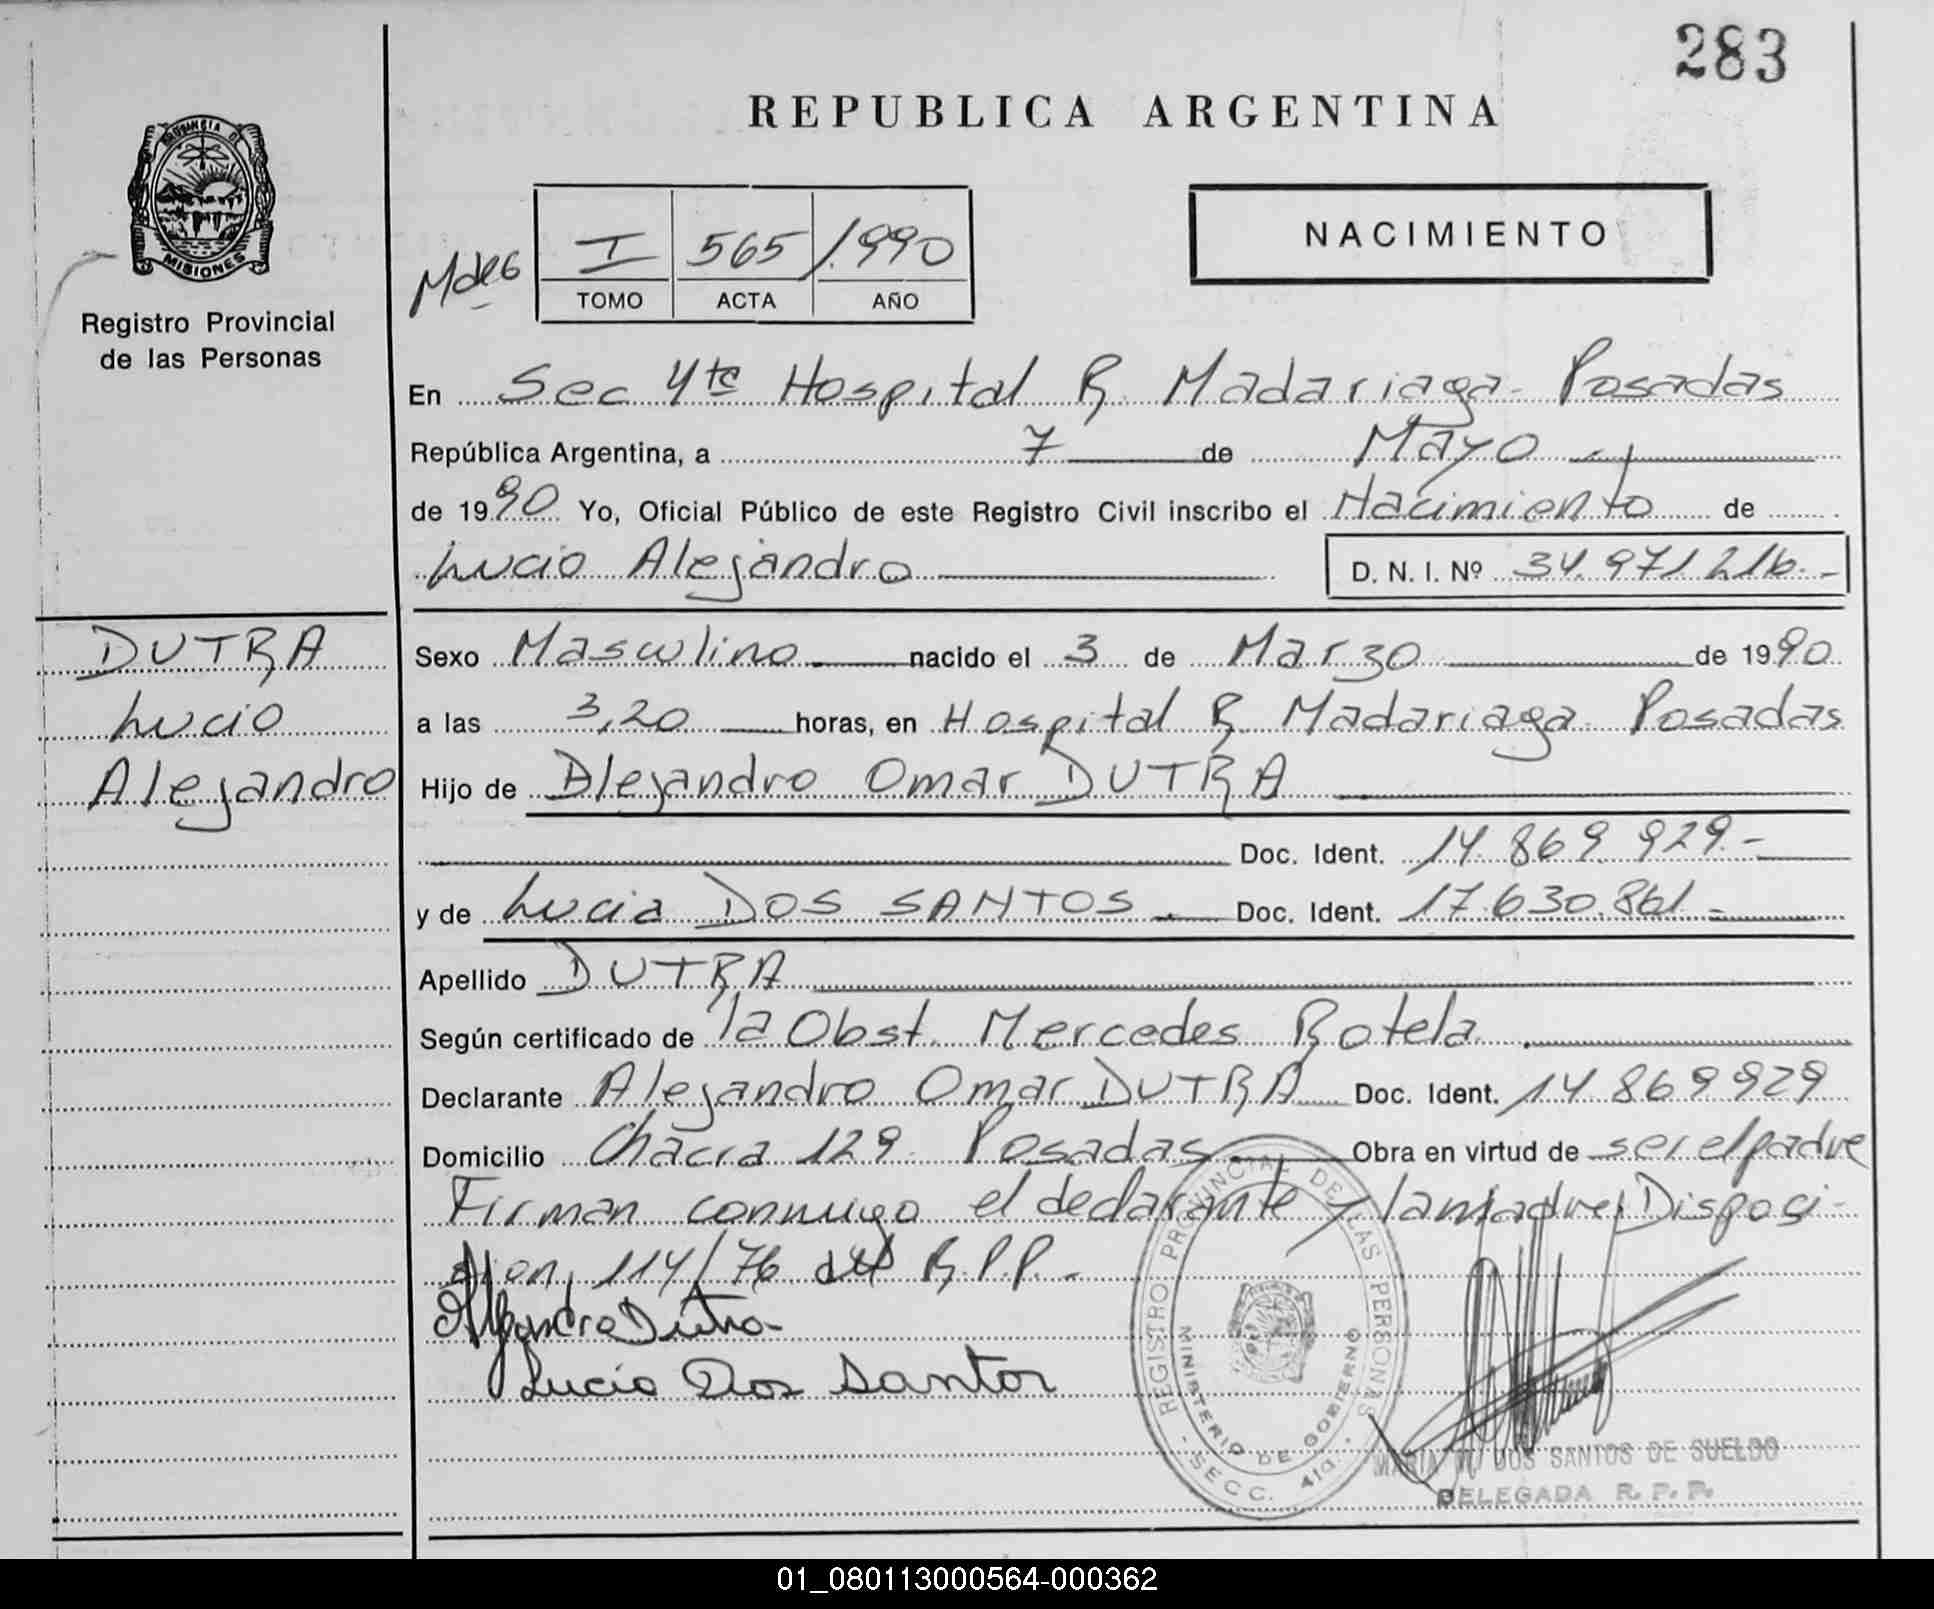 283
REPUBLICA ARGENTINA
PROVINCIA DE
MISIONES
Registro Provincial
de las Personas
NACIMIENTO
I 565 1.990
TOMO ACTA AÑO
En Sec 4ta Hospital R. Madariaga - Posadas
República Argentina, a 7 de Mayo
de 1990 Yo, Oficial Público de este Registro Civil inscribo el Nacimiento de
Lucio Alejandro D. N. I. Nº 34.971.216.-
DUTRA
Lucio
Alejandro
Sexo Masculino nacido el 3 de Marzo de 1990
a las 3,20 horas, en Hospital R. Madariaga - Posadas
Hijo de Alejandro Omar DUTRA
Doc. Ident. 14.869.929.-
y de Lucia DOS SANTOS Doc. Ident. 17.630.861.-
Apellido DUTRA
Según certificado de la Obst. Mercedes Rotela
Declarante Alejandro Omar DUTRA Doc. Ident. 14.869.929
Domicilio Chacra 129 Posadas Obra en virtud de ser el padre
Firman conmigo el declarante y la madre Disposi-
cion 114/76 del R.P.P.-
Alejandro Dutra
Lucia Dos Santos
REGISTRO PROVINCIAL DE LAS PERSONAS
MINISTERIO DE GOBIERNO
SECC. 4ta.
MARIA M. DOS SANTOS DE SUELDO
DELEGADA R. P. P.
01_080113000564-000362